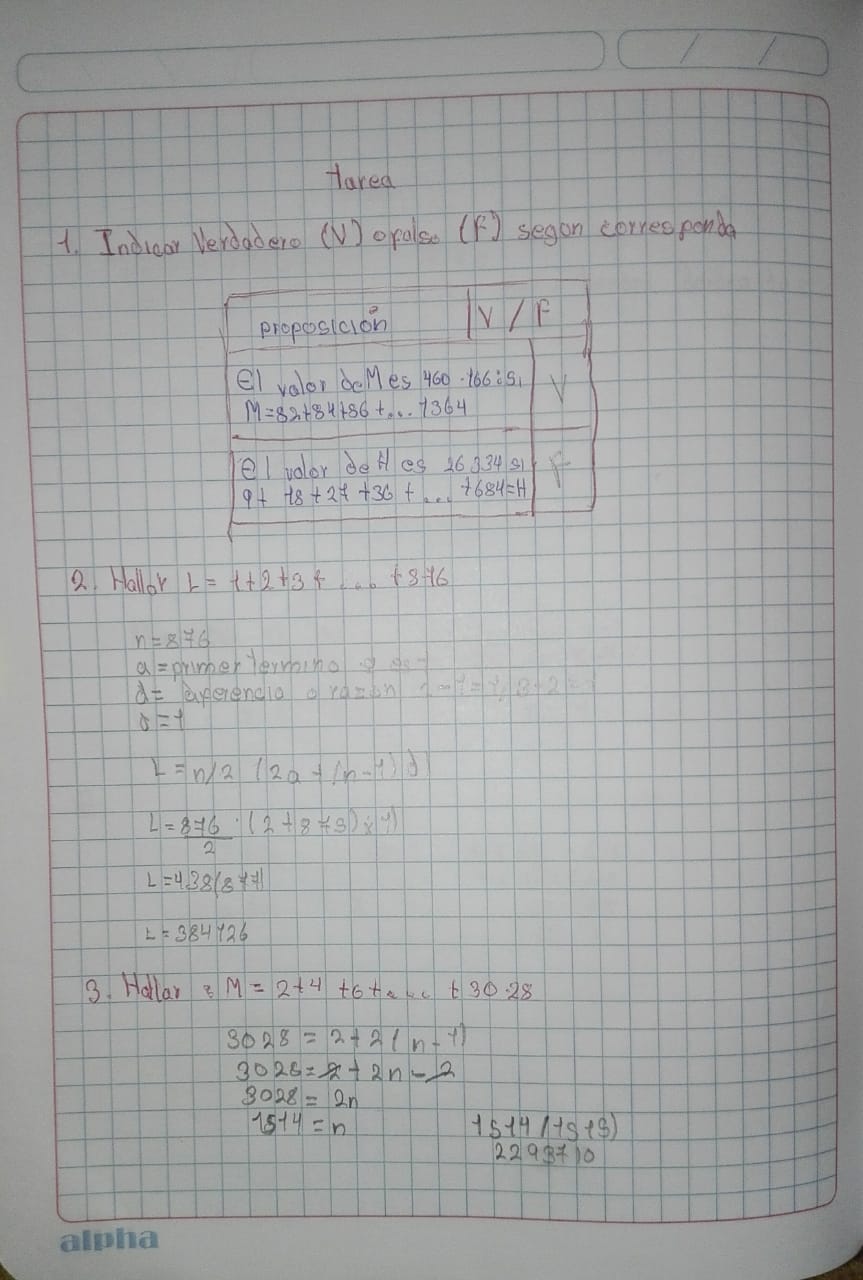 tarea
1. Indicar Verdadero (V) o falso (F) segun corresponda
proposición V / F
El valor de M es 460 166 : si V
M=82+84+86+... 1364
El valor de H es 26 334 si F
9+ 18+27+36+... +684=H
2. Hallar L= 1+2+3+ ... +876
n=876
a=primer termino
d= diferencia o razón
L=n/2 (2a+(n-1)d)
L=876/2
L=438(877)
L=384126
3. Hallar : M= 2+4 +6+.... +3028
3028 = 2+2(n-1)
3028=2+2n-2
3028= 2n
1514=n 1514(1515)
2293710
alpha